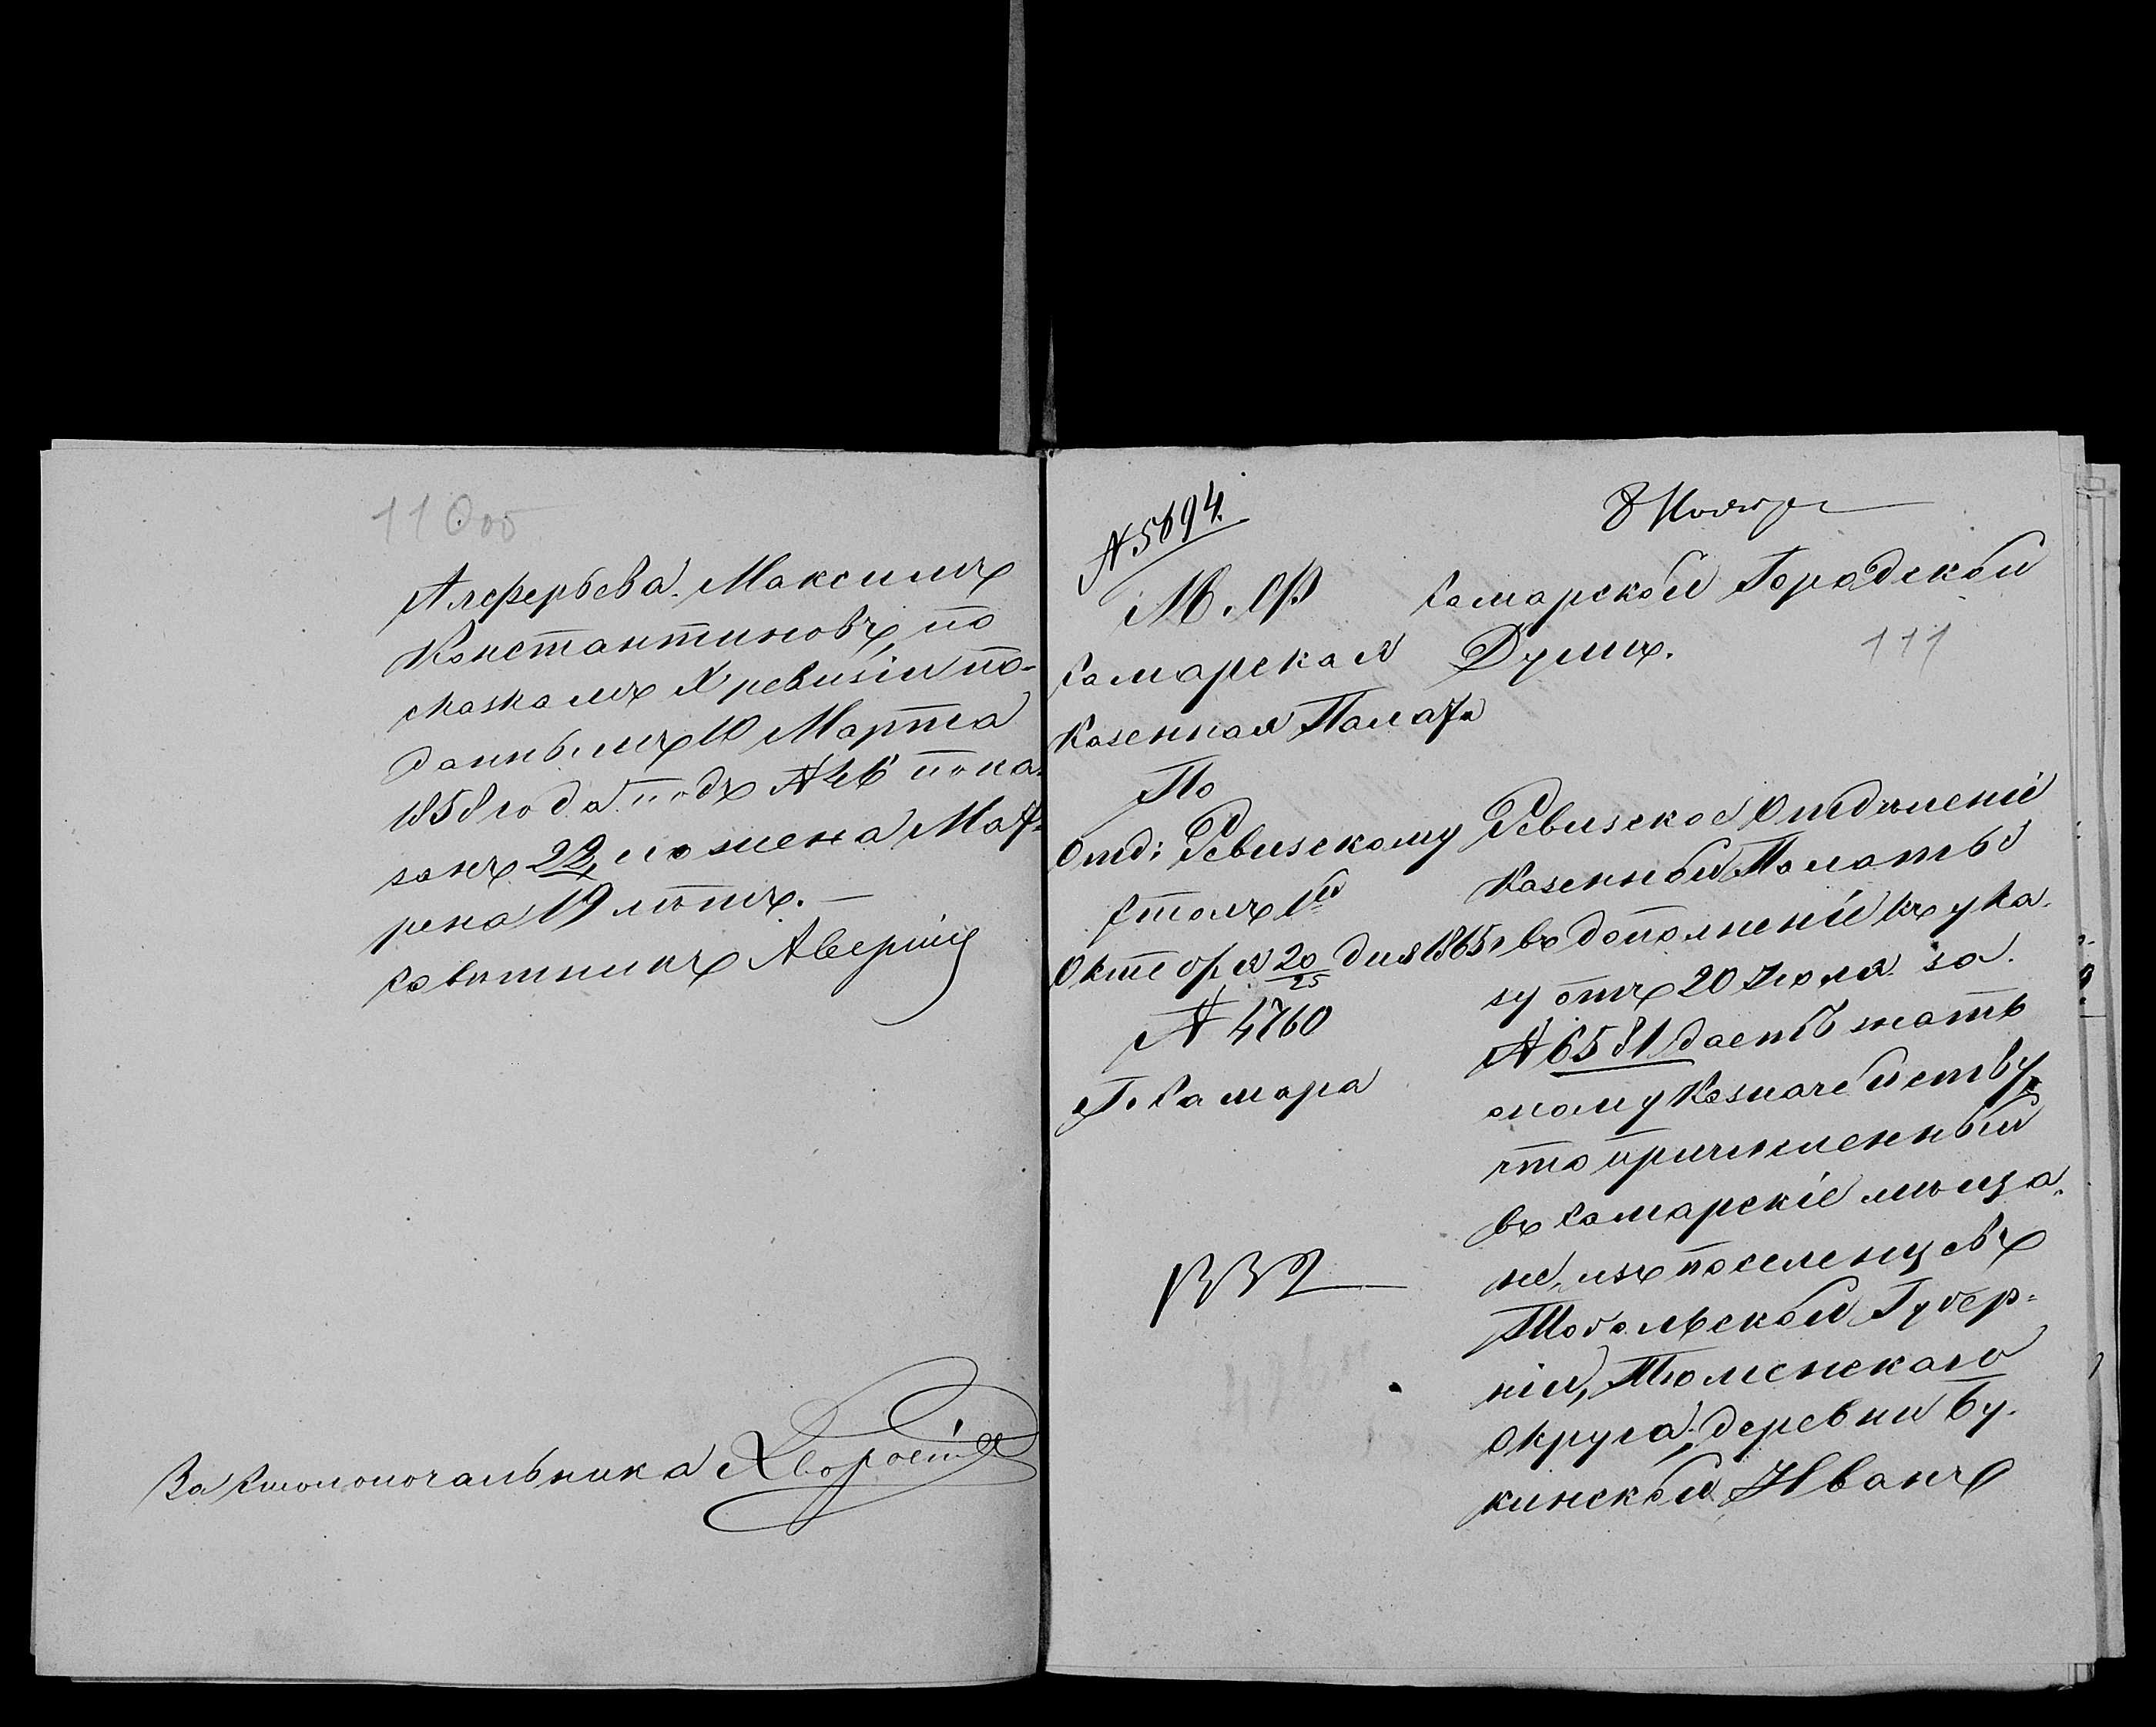 110об
Алферьева. Максимъ
Константиновъ, по
сказкамъ X ревизіи по-
даннымъ 10 Марта
1858 года подъ № 46 пока-
занъ 22, и жена Мат-
рена 19 лѣтъ. —
Совѣтникъ Аверкіе
За Столоначальника
№ 5694.
8 Ноября
М. Ф.
Самарская
Казенная Палата
По
Отд: Ревизскому
Столъ 1й
Октября 20/25 дня 1865 г
№ 4760
Г. Самара
1332
Самарской Городской
Думѣ.
111
Ревизское Отдѣленіе
Казенной Палаты
въ дополненіе къ ука-
зу отъ 20 Іюля за
№ 6581 даетъ знать
оному Казначейству,
что причисленный
въ Самарскіе мѣща-
не, изъ поселенцевъ
Тобольской Губер-
ніи, Тюменскаго
округа, деревни Бу-
кинской Иванъ